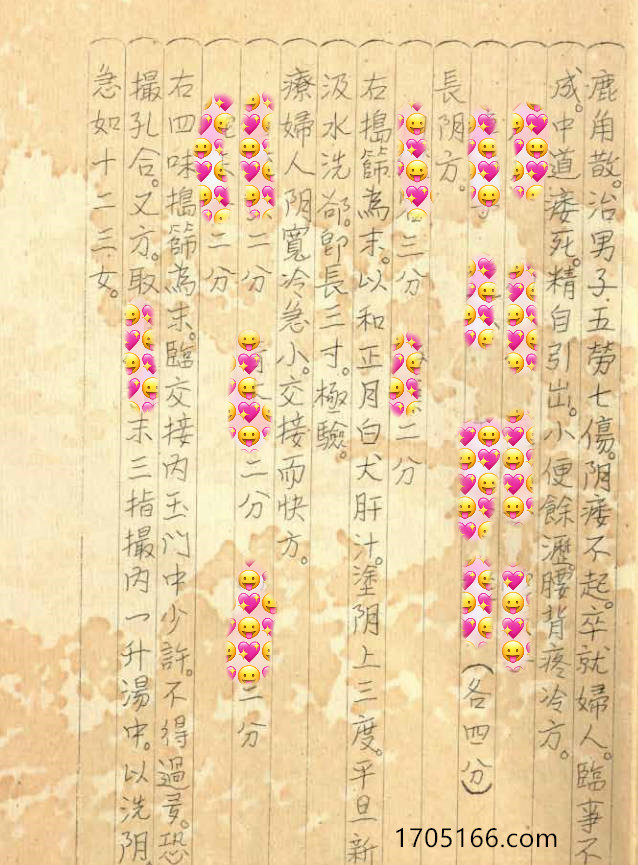 鹿角散。治男子五勞七傷。阴痿不起。卒就婦人。臨事不
成。中道痿死。精自引出。小便餘瀝。腰背疼冷方。
(各四分)
長阴方。
三分 二分
右搗篩為末。以和正月白犬肝汁。塗阴上三度。平旦新
汲水洗却。即長三寸。極驗。
療婦人阴寬冷急小。交接而快方。
二分 二分 二分
二分
右四味搗篩為末。臨交接內玉门中少許。不得過多。恐
撮孔合。又方。取 末三指撮內一升湯中。以洗阴
急如十二三女。
1705166.com